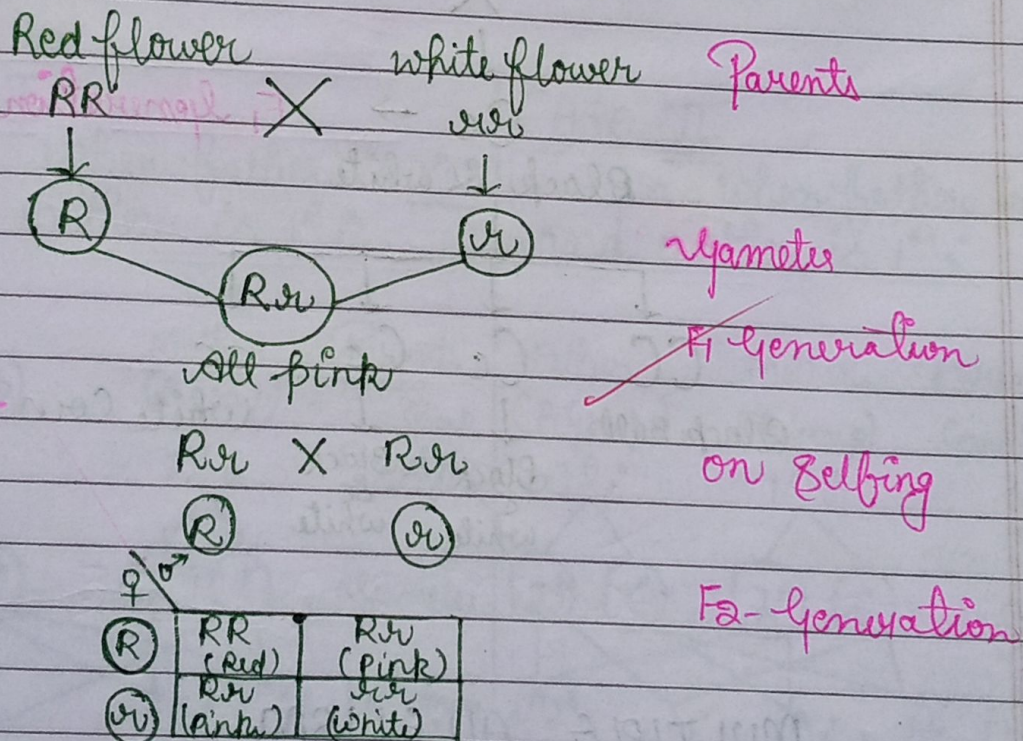 Red flower white flower Parents
RR X rr
R r Gametes
Rr
F1 Generation
All pink
Rr X Rr on Selfing
R r
♀ ♂
F2- Generation
R RR Rr
(Red) (pink)
r Rr rr
(pink) (white)